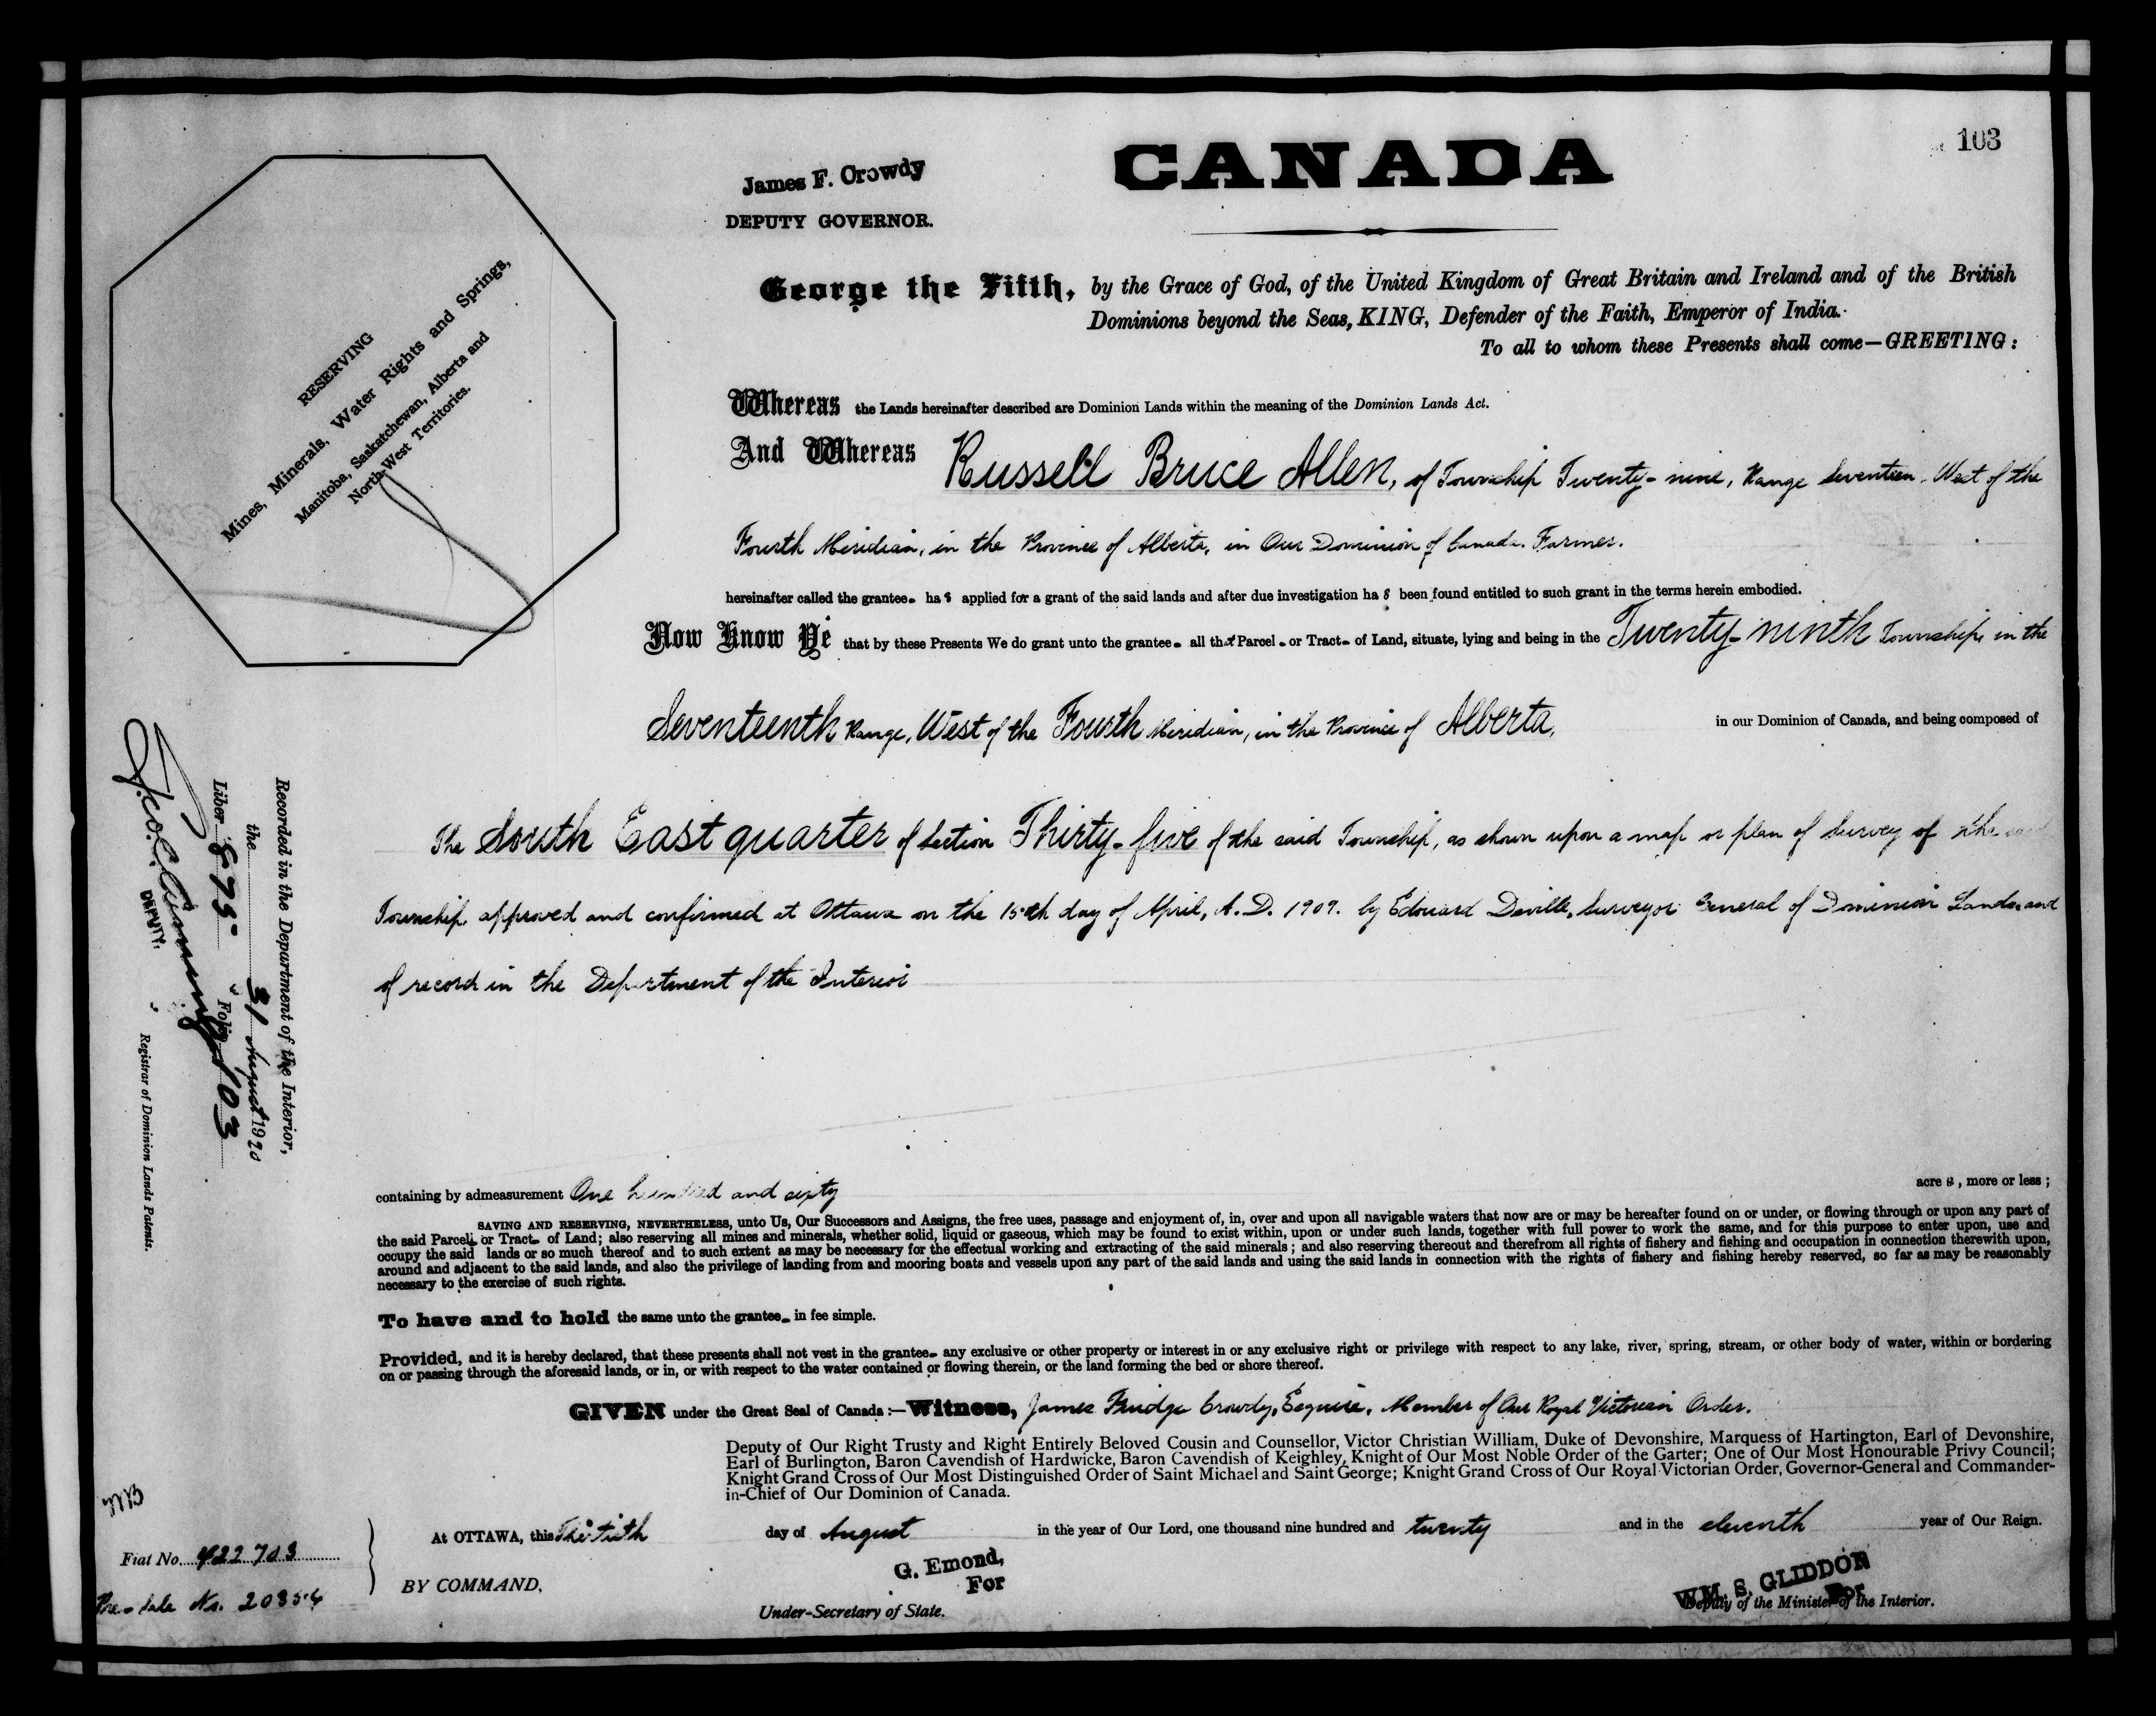 103
CANADA
James F. Crowdy
DEPUTY GOVERNOR.
George the Fifth, by the Grace of God, of the United Kingdom of Great Britain and Ireland and of the British
Dominions beyond the Seas, KING, Defender of the Faith, Emperor of India.
To all to whom these Presents shall come—GREETING:
RESERVING
Mines, Minerals, Water Rights and Springs,
Manitoba, Saskatchewan, Alberta and
North-West Territories.
Whereas the Lands hereinafter described are Dominion Lands within the meaning of the Dominion Lands Act.
And Whereas Russell Bruce Allen, of Township Twenty-nine, Range Seventeen, West of the
Fourth Meridian, in the Province of Alberta, in Our Dominion of Canada. Farmer.
hereinafter called the grantee- has applied for a grant of the said lands and after due investigation has been found entitled to such grant in the terms herein embodied.
Now Know Ye that by these Presents We do grant unto the grantee- all that Parcel - or Tract- of Land, situate, lying and being in the Twenty-ninth Township, in the
Seventeenth Range, West of the Fourth Meridian, in the Province of Alberta, in our Dominion of Canada, and being composed of
The South East quarter of Section Thirty-five of the said Township, as shown upon a map or plan of Survey of the said
Township, approved and confirmed at Ottawa on the 15th day of April, A.D. 1909. by Edouard Deville, Surveyor General of Dominion Lands and
of record in the Department of the Interior
Recorded in the Department of the Interior,
the 31 August 1920
Liber 875 Folio 103
DEPUTY.
Registrar of Dominion Lands Patents.
containing by admeasurement One hundred and sixty acres, more or less;
SAVING AND RESERVING, NEVERTHELESS, unto Us, Our Successors and Assigns, the free uses, passage and enjoyment of, in, over and upon all navigable waters that now are or may be hereafter found on or under, or flowing through or upon any part of
the said Parcel- or Tract- of Land; also reserving all mines and minerals, whether solid, liquid or gaseous, which may be found to exist within, upon or under such lands, together with full power to work the same, and for this purpose to enter upon, use and
occupy the said lands or so much thereof and to such extent as may be necessary for the effectual working and extracting of the said minerals; and also reserving thereout and therefrom all rights of fishery and fishing and occupation in connection therewith upon,
around and adjacent to the said lands, and also the privilege of landing from and mooring boats and vessels upon any part of the said lands and using the said lands in connection with the rights of fishery and fishing hereby reserved, so far as may be reasonably
necessary to the exercise of such rights.
To have and to hold the same unto the grantee- in fee simple.
Provided, and it is hereby declared, that these presents shall not vest in the grantee- any exclusive or other property or interest in or any exclusive right or privilege with respect to any lake, river, spring, stream, or other body of water, within or bordering
on or passing through the aforesaid lands, or in, or with respect to the water contained or flowing therein, or the land forming the bed or shore thereof.
GIVEN under the Great Seal of Canada:—Witness, James Fludge Crowdy, Esquire, Member of Our Royal Victorian Order.
Deputy of Our Right Trusty and Right Entirely Beloved Cousin and Counsellor, Victor Christian William, Duke of Devonshire, Marquess of Hartington, Earl of Devonshire,
Earl of Burlington, Baron Cavendish of Hardwicke, Baron Cavendish of Keighley, Knight of Our Most Noble Order of the Garter; One of Our Most Honourable Privy Council;
Knight Grand Cross of Our Most Distinguished Order of Saint Michael and Saint George; Knight Grand Cross of Our Royal Victorian Order, Governor-General and Commander-
in-Chief of Our Dominion of Canada.
At OTTAWA, this Thirtieth day of August in the year of Our Lord, one thousand nine hundred and twenty and in the eleventh year of Our Reign.
Fiat No. 422703
BY COMMAND,
G. Emond,
For
Under-Secretary of State.
WM. S. GLIDDON
For
Deputy of the Minister of the Interior.
Pre-Sale No. 20854